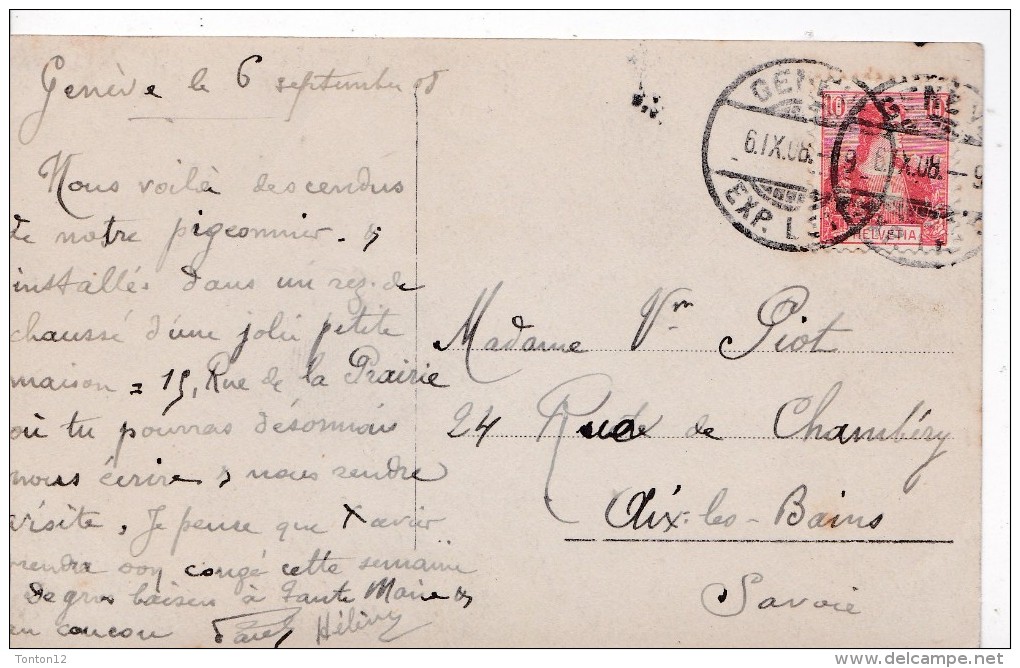 Genève le 6 septembre 08
Nous voilà descendus
de notre pigeonnier &
installés dans un rez-de
chaussé d'une jolie petite
maison = 15, Rue de la Prairie
où tu pourras désormais
nous écrire & nous rendre
visite, Je pense que avoir
congé cette semaine
de gros baisers à tante Marie &
coucou Hélène
GENÈVE
6.IX.08.-9
EXP. LETT.
GENÈVE
6.IX.08.-9
10 10
HELVETIA
Madame Vve Piot
24 Rue de Chambéry
Aix-les-Bains
Savoie
Tonton12
www.delcampe.net